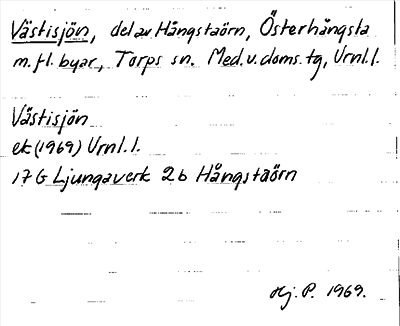 Västisjön, del av Hångstaörn, Österhångsta
m. fl. byar, Torps sn. Med. v. doms. tg, Urnl. l.
Västisjön
ek (1969) Urnl. l.
17 G Ljungaverk 2b Hångstaörn
Hj. P. 1969.